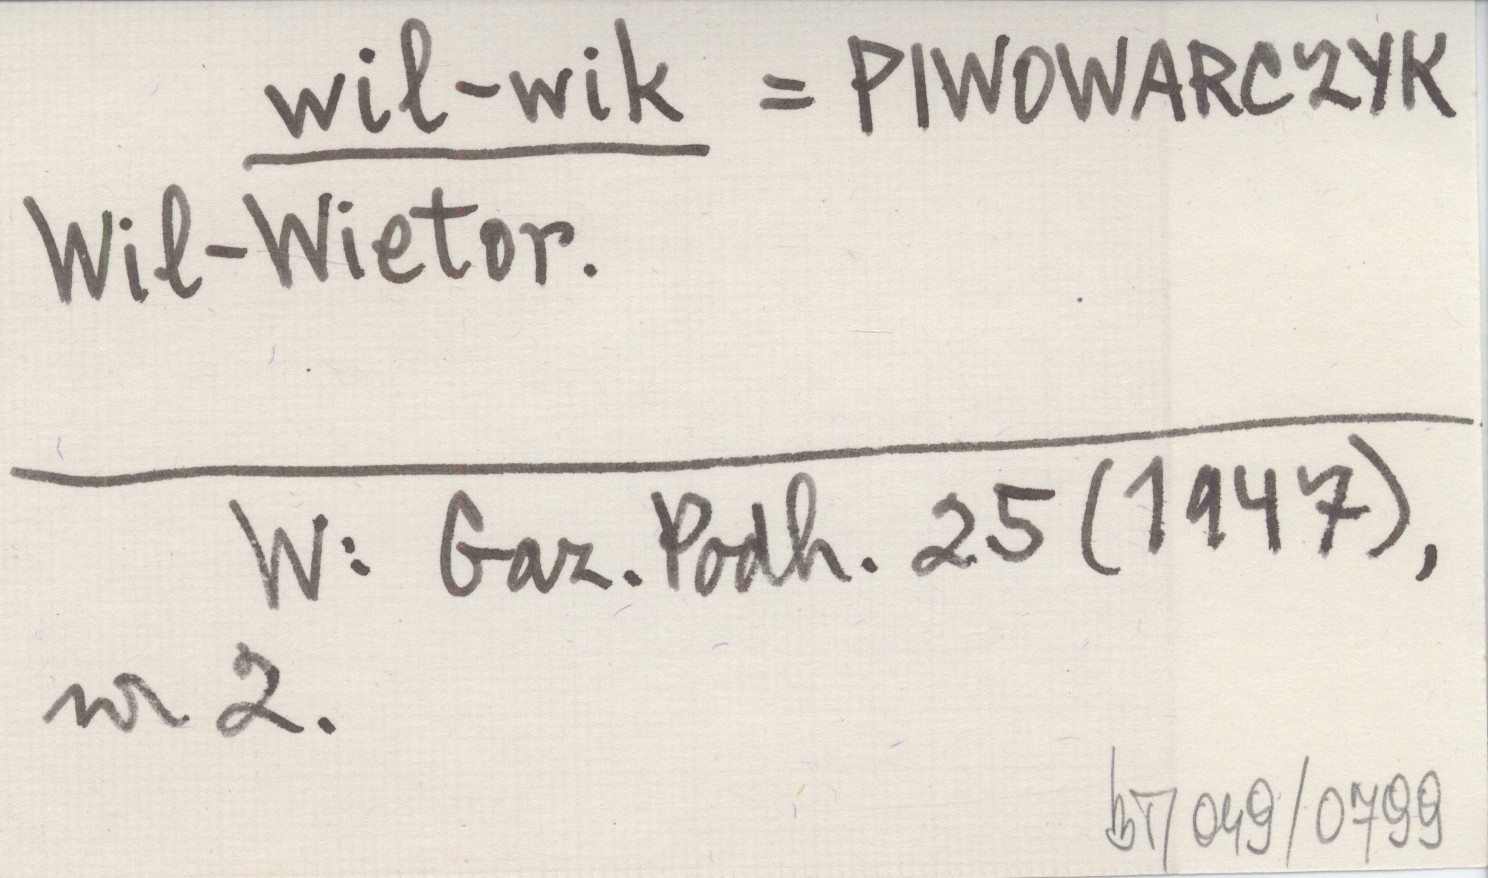 wil-wik = PIWOWARCZYK
Wil-Wietor.
W: Gaz. Podh. 25 (1947),
nr 2.
bT/049/0799